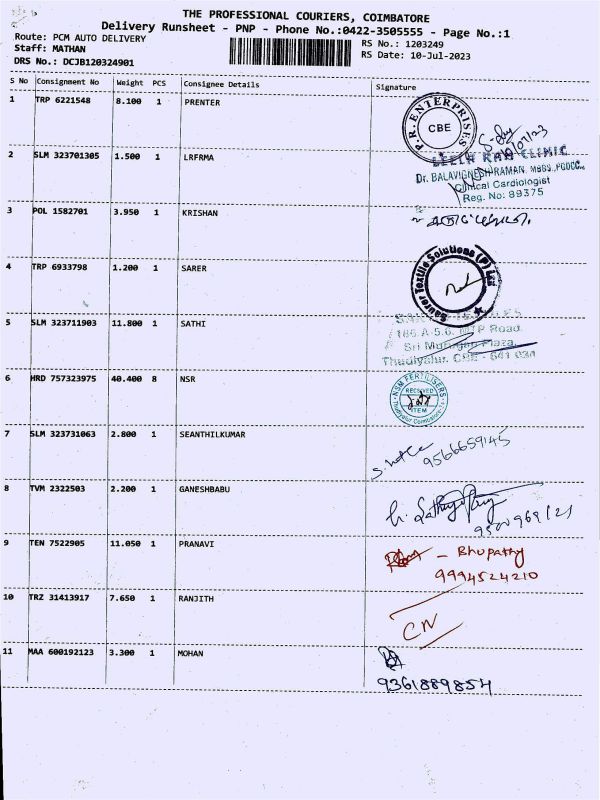 THE PROFESSIONAL COURIERS, COIMBATORE
Delivery Runsheet - PNP - Phone No.:0422-3505555 - Page No.:1
Route: PCM AUTO DELIVERY
RS No.: 1203249
Staff: MATHAN
RS Date: 10-Jul-2023
DRS No.: DCJB120324901
S No Consignment No Weight PCS Consignee Details Signature
1 TRP 6221548 8.100 1 PRENTER
P.R. ENTERPRISES
CBE
2 SLM 323701305 1.500 1 LRFRMA
LEELA RAM CLINIC
Dr. BALAVIGNESH RAMAN, MBBS.,PGDCC.,
Clinical Cardiologist
Reg. No: 89375
3 POL 1582701 3.950 1 KRISHAN
4 TRP 6933798 1.200 1 SARER
Saurer Textile Solutions (P) Ltd
5 SLM 323711903 11.800 1 SATHI
186 A-5,6, MTP Road
Sri Murugan Plaza,
Thudiyalur, CBE - 641 034
6 HRD 757323975 40.400 8 NSR
NSM FERTILISERS
RECEIVED
ITEM
Thudiyalur Coimbatore
7 SLM 323731063 2.800 1 SEANTHILKUMAR
9566659145
8 TVM 2322503 2.200 1 GANESHBABU
9500969121
9 TEN 7522905 11.050 1 PRANAVI
- Bhupathy
9994524210
10 TRZ 31413917 7.650 1 RANJITH
CN
11 MAA 600192123 3.300 1 MOHAN
9361889854